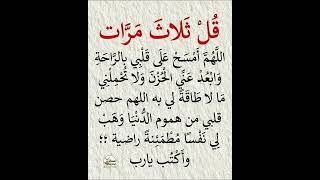 قُلْ ثَلَاثَ مَرَّات
اللَّهُمَّ أَمْسَحْ عَلَى قَلْبِي بِالرَّاحَةِ
وَابْعُدْ عَنِّي الْحُزْنَ وَلَا تُحَمِّلْنِي
مَا لَا طَاقَةَ لِي بِهِ اللهم حصن
قلبي من هموم الدُّنْيَا وَهَبْ
لِي نَفْسًا مُطْمَئِنَةً راضية ؛؛
وأَكْتُب يارب